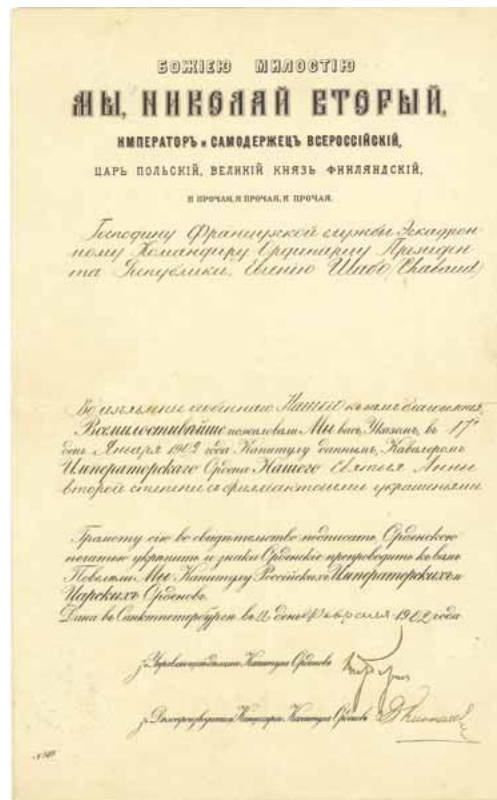 БОЖІЕЮ МИЛОСТІЮ
МЫ, НИКОЛАЙ ВТОРЫЙ,
ИМПЕРАТОРЪ и САМОДЕРЖЕЦЪ ВСЕРОССІЙСКІЙ,
ЦАРЬ ПОЛЬСКІЙ, ВЕЛИКІЙ КНЯЗЬ ФИНЛЯНДСКІЙ,
И ПРОЧАЯ, И ПРОЧАЯ, И ПРОЧАЯ.
Господину Французской службы Эскадрон-
ному Командиру Ординарцу Президен-
та Республики, Евгенію Шабо (Chabaud)
Во изъявленіе особеннаго Нашего къ вамъ благоволенія,
Всемилостивѣйше пожаловали Мы васъ, Указомъ, въ 17й
день Января 1902 года Капитулу даннымъ, Кавалеромъ
Императорскаго Ордена Нашего Святыя Анны
второй степени съ брилліантовыми украшеніями
Грамоту сію во свидѣтельство подписать, Орденскою
печатью укрѣпить и знаки Орденскіе препроводить къ вамъ
Повелѣли Мы Капитулу Россійскихъ Императорскихъ и
Царскихъ Орденовъ.
Дана въ Санктпетербургѣ въ день Февраля 1902 года
Капитула Орденовъ
Капитула Орденовъ